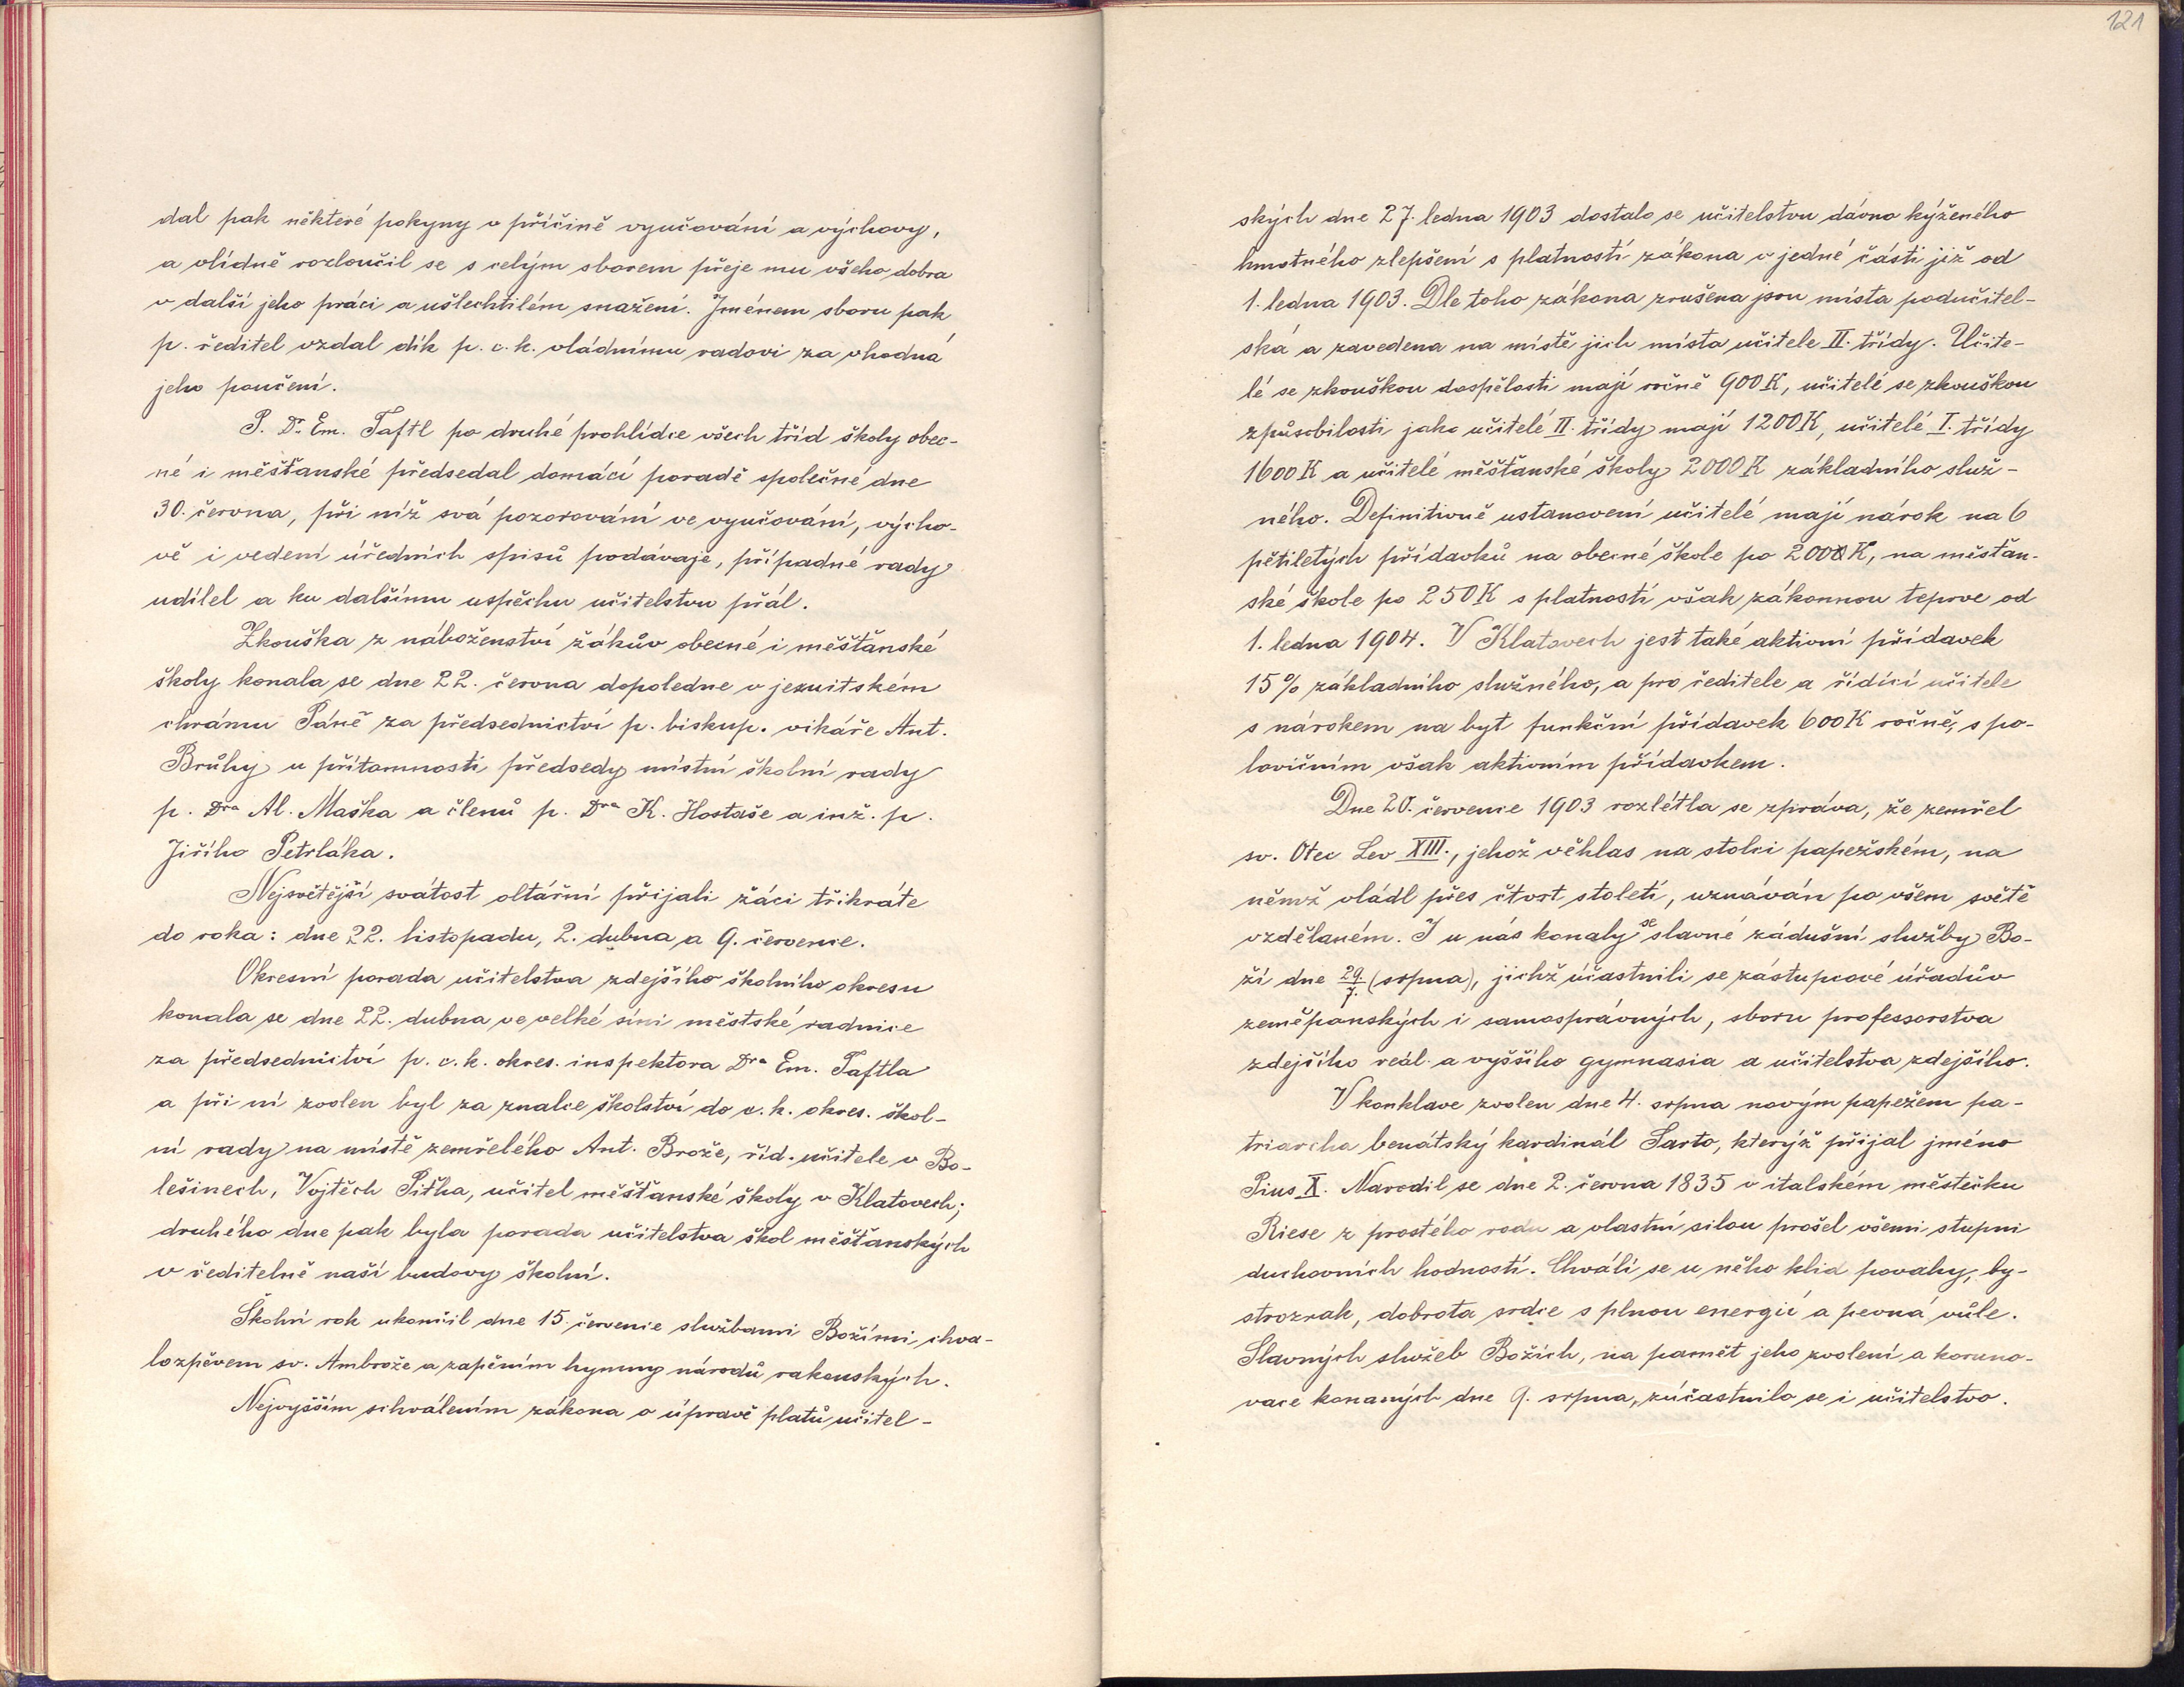 dal pak některé pokyny v příčině vyučování a výchovy,
a vlídně rozloučil se s celým sborem přeje mu všeho dobra
v další jeho práci a ušlechtilém snažení. Jménem sboru pak
p. ředitel vzdal dík p. c. k. vládnímu radovi za vhodná
jeho poučení.
P. Dr. Em. Taftl po druhé prohlídce všech tříd školy obec-
né i měšťanské předsedal domácí poradě společné dne
30. června, při níž svá pozorování ve vyučování, výcho-
vě i vedení úředních spisů podávaje, případné rady
udílel a ku dalšímu uspěchu učitelstvu přál.
Zkouška z náboženství žákův obecné i měšťanské
školy konala se dne 22. června dopoledne v jezuitském
chrámu Páně za předsednictví p. biskup. vikáře Ant.
Brůhy u přítomnosti předsedy místní školní rady
p. Dra Al. Maška a členů p. Dra K. Hostaše a inž. p.
Jiřího Petrláka.
Nejsvětější svátost oltářní přijali žáci třikráte
do roka: dne 22. listopadu, 2. dubna a 9. července.
Okresní porada učitelstva zdejšího školního okresu
konala se dne 22. dubna ve velké síni městské radnice
za předsednictví p. c. k. okres. inspektora Dra Em. Taftla
a při ní zvolen byl za znalce školství do c. k. okres. škol-
ní rady na místě zemřelého Ant. Brože, říd. učitele v Bo-
lešinech, Vojtěch Piťha, učitel měšťanské školy v Klatovech;
druhého dne pak byla porada učitelstva škol měšťanských
v ředitelně naší budovy školní.
Školní rok ukončil dne 15. července službami Božími, chva-
lozpěvem sv. Ambrože a zapěním hymny národů rakouských.
Nejvyšším schválením zákona o úpravě platů učitel-
121
ských dne 27. ledna 1903 dostalo se učitelstvu dávno kýženého
hmotného zlepšení s platností zákona v jedné části již od
1. ledna 1903. Dle toho zákona zrušena jsou místa podučitel-
ská a zavedena na místě jich místa učitele II. třídy. Učite-
lé se zkouškou dospělosti mají ročně 900 K, učitelé se zkouškou
způsobilosti jako učitelé II. třídy mají 1200 K, učitelé I. třídy
1600 K a učitelé měšťanské školy 2000 K základního služ-
ného. Definitivně ustanovení učitelé mají nárok na 6
pětiletých přídavků na obecné škole po 200 K, na měšťan-
ské škole po 250 K s platností však zákonnou teprve od
1. ledna 1904. V Klatovech jest také aktivní přídavek
15% základního služného, a pro ředitele a řídící učitele
s nárokem na byt funkční přídavek 600 K ročně, s po-
lovičním však aktivním přídavkem.
Dne 20. července 1903 rozlétla se zpráva, že zemřel
sv. Otec Lev XIII., jehož věhlas na stolci papežském, na
němž vládl přes čtvrt století, uznáván po všem světě
vzdělaném. I u nás konaly se slavné zádušní služby Bo-
ží dne 29/7. (srpna), jichž účastnili se zástupcové úřadův
zeměpanských i samosprávných, sboru professorstva
zdejšího reál. a vyššího gymnasia a učitelstva zdejšího.
V konklave zvolen dne 4. srpna novým papežem pa-
triarcha benátský kardinál Sarto, kterýž přijal jméno
Pius X. Narodil se dne 2. června 1835 v italském městečku
Riese z prostého rodu a vlastní silou prošel všemi stupni
duchovních hodností. Chválí se u něho klid povahy, by-
strozrak, dobrota srdce s plnou energií a pevná vůle.
Slavných služeb Božích, na pamět jeho zvolení a koruno-
vace konaných dne 9. srpna, zúčastnilo se i učitelstvo.